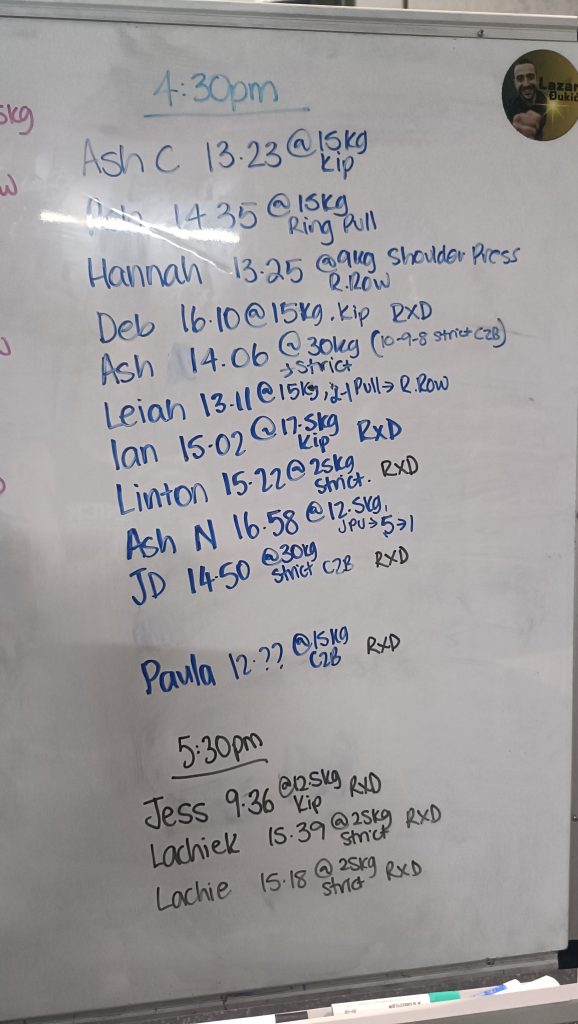 5kg
W
4:30pm
Ash C 13.23 @15kg
Kip
14.35 @15kg
Ring Pull
Hannah 13.25 @9kg Shoulder Press
R.Row
Deb 16.10@15kg.Kip RXD
Ash 14.06 @30kg (10-9-8 strict C2B)
→ Strict
Leiah 13.11@15kg, 2-1 Pull→R.Row
Ian 15.02@17.5kg RxD
Kip
Linton 15.22@25kg RXD
Strict.
Ash N 16.58 @12.5kg,
JPU→5→1
JD 14.50 @30kg RXD
Strict C2B
Paula 12.?? @15kg RXD
C2B
5:30pm
Jess 9.36 @12.5kg RXD
Kip
LachieK 15.39 @25kg RXD
Strict
Lachie 15.18 @25kg RXD
Strict
Lazar
Đukić